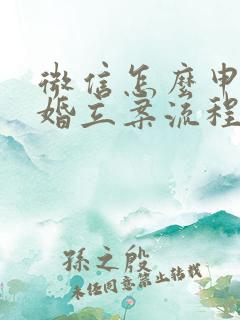 微信怎麼申
婚立案流程
孫之殷
未经同意禁止转载